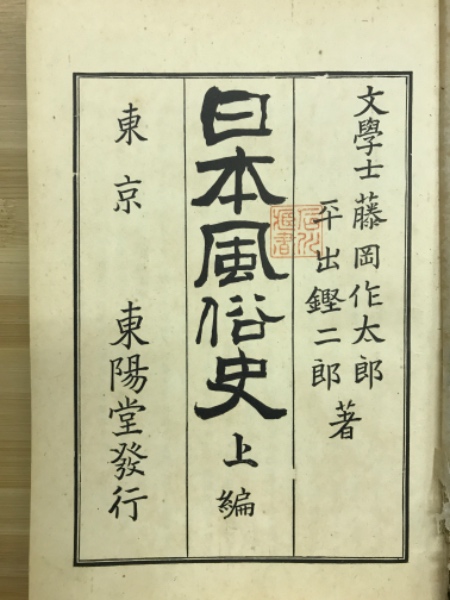 文學士藤岡作太郎
平出鏗二郎
著
日本風俗史
上編
東京
東陽堂發行